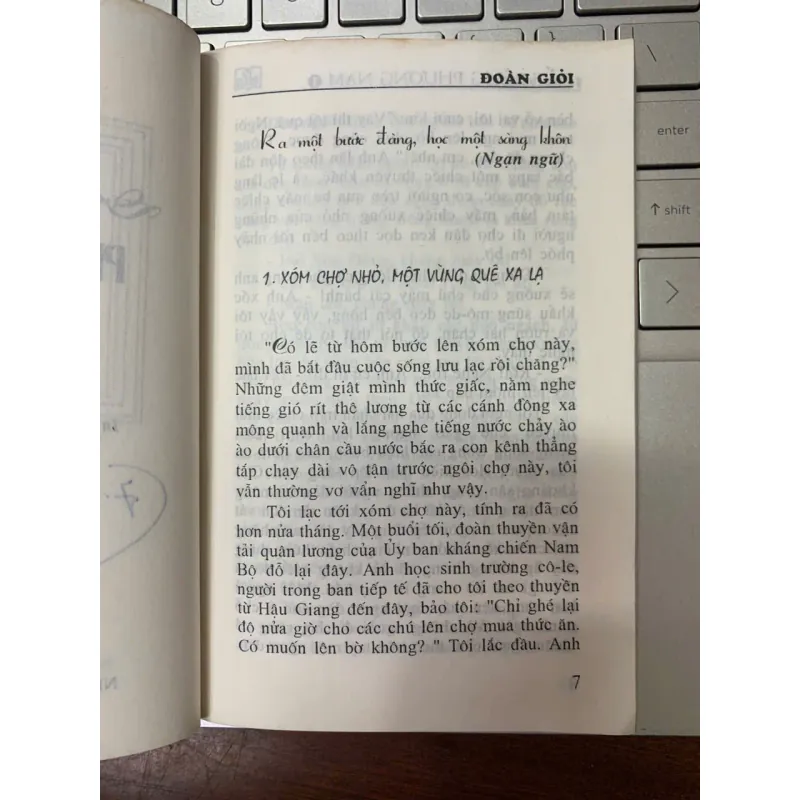 ĐOÀN GIỎI
Ra một bước đàng, học một sàng khôn
(Ngạn ngữ)
1. XÓM CHỢ NHỎ, MỘT VÙNG QUÊ XA LẠ
"Có lẽ từ hôm bước lên xóm chợ này,
mình đã bắt đầu cuộc sống lưu lạc rồi chăng?"
Những đêm giật mình thức giấc, nằm nghe
tiếng gió rít thê lương từ các cánh đồng xa
mông quạnh và lắng nghe tiếng nước chảy ào
ào dưới chân cầu nước bắc ra con kênh thẳng
tắp chạy dài vô tận trước ngôi chợ này, tôi
vẫn thường vơ vẩn nghĩ như vậy.
Tôi lạc tới xóm chợ này, tính ra đã có
hơn nửa tháng. Một buổi tối, đoàn thuyền vận
tải quân lương của Ủy ban kháng chiến Nam
Bộ đỗ lại đây. Anh học sinh trường cô-le,
người trong ban tiếp tế đã cho tôi theo thuyền
từ Hậu Giang đến đây, bảo tôi: "Chỉ ghé lại
độ nửa giờ cho các chú lên chợ mua thức ăn.
Có muốn lên bờ không? " Tôi lắc đầu. Anh
7
enter
↑ shift